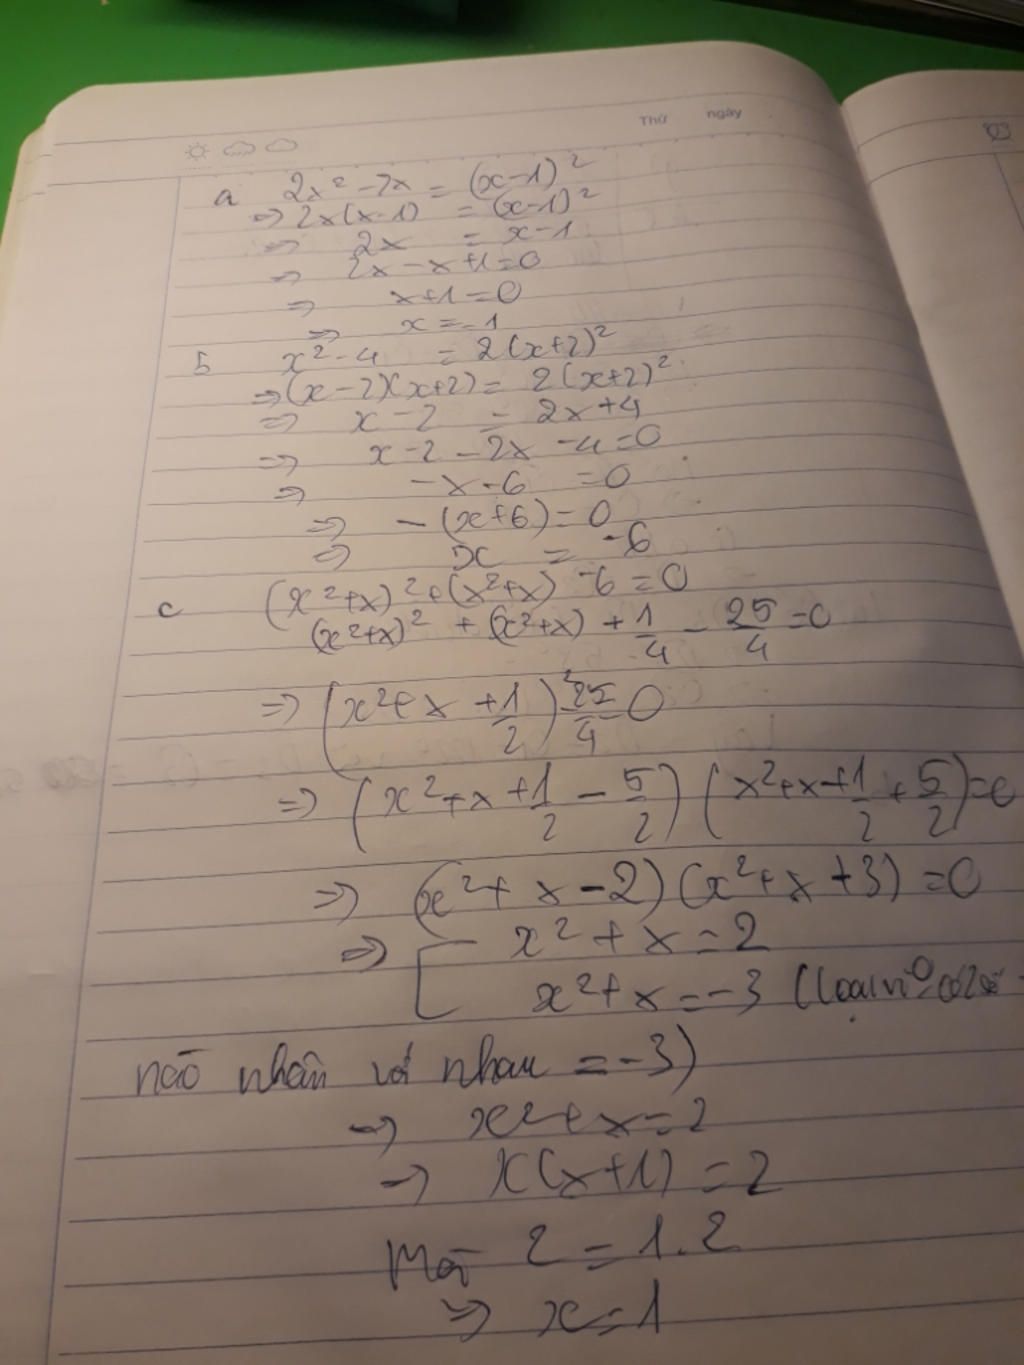 Thứ ngày
a 2x² - 2x = (x-1)²
=> 2x(x-1) = (x-1)²
=> 2x = x-1
=> 2x - x + 1 = 0
=> x+1 = 0
=> x = -1
b x² - 4 = 2(x+2)²
=> (x-2)(x+2) = 2(x+2)²
=> x - 2 = 2x+4
=> x - 2 - 2x - 4 = 0
=> -x - 6 = 0
=> -(x+6) = 0
=> x = -6
c (x²+x)² + (x²+x) - 6 = 0
(x²+x)² + (x²+x) + 1/4 - 25/4 = 0
=> (x²+x+1/2)² - 25/4 = 0
=> (x²+x+1/2 - 5/2)(x²+x+1/2 + 5/2) = 0
=> (x²+x-2)(x²+x+3) = 0
=> [ x²+x = 2
x²+x = -3 (loại vì có 2 số
nào nhân với nhau = -3)
=> x²+x = 2
=> x(x+1) = 2
Mà 2 = 1.2
=> x = 1